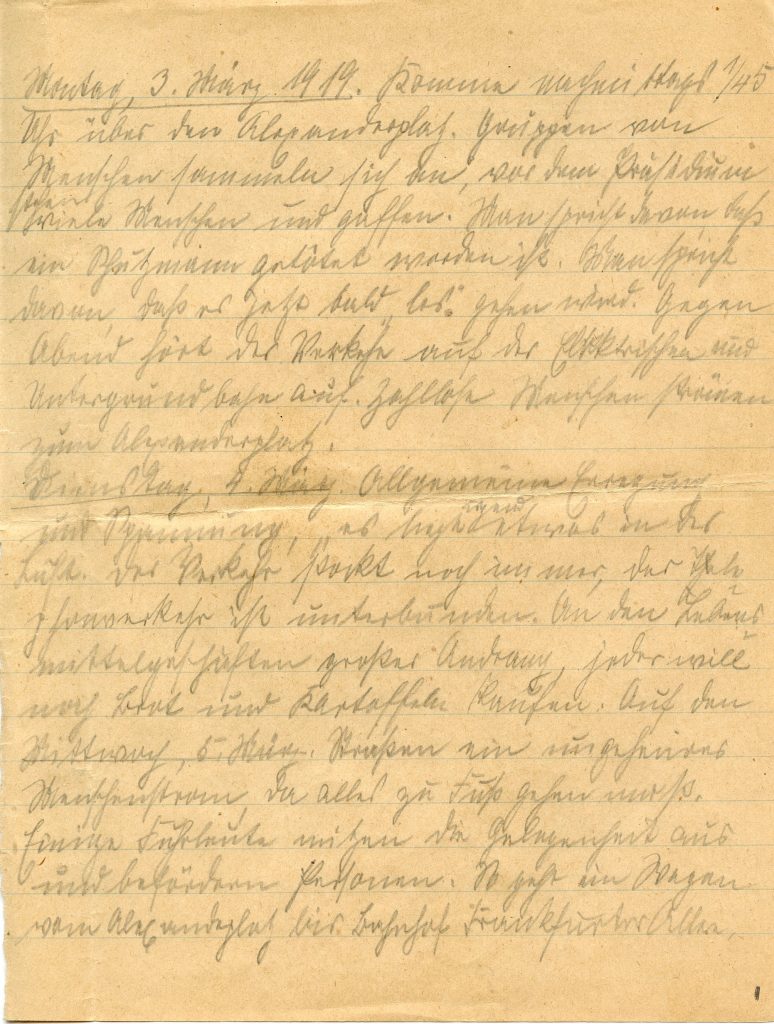 Montag, 3. März 1919. Komme nachmittags 1/45
Uhr über den Alexanderplatz. Gruppen von
Menschen sammeln sich an, vor dem Präsidium
stehen
viele Menschen und gaffen. Man spricht davon, daß
ein Schutzmann getötet worden ist. Man spricht
davon, daß es jetzt bald „los" gehen wird. Gegen
Abend hört der Verkehr auf der Elektrischen und
Untergrundbahn auf. Zahllose Menschen strömen
zum Alexanderplatz.
Dienstag, 4. März. Allgemeine Erregung
und Spannung, „es liegt irgend etwas in der
Luft. Der Verkehr stockt noch immer, der Tele
phonverkehr ist unterbunden. An den Lebens
mittelgeschäften großer Andrang, jeder will
noch Brot und Kartoffeln kaufen. Auf den
Mittwoch, 5. März. Straßen ein ungeheures
Menschenstrom, da alles zu Fuß gehen muß.
Einige Fuhrleute nutzen die Gelegenheit aus
und befördern Personen. So geht ein Wagen
vom Alexanderplatz bis Bahnhof Frankfurter Allee,
1